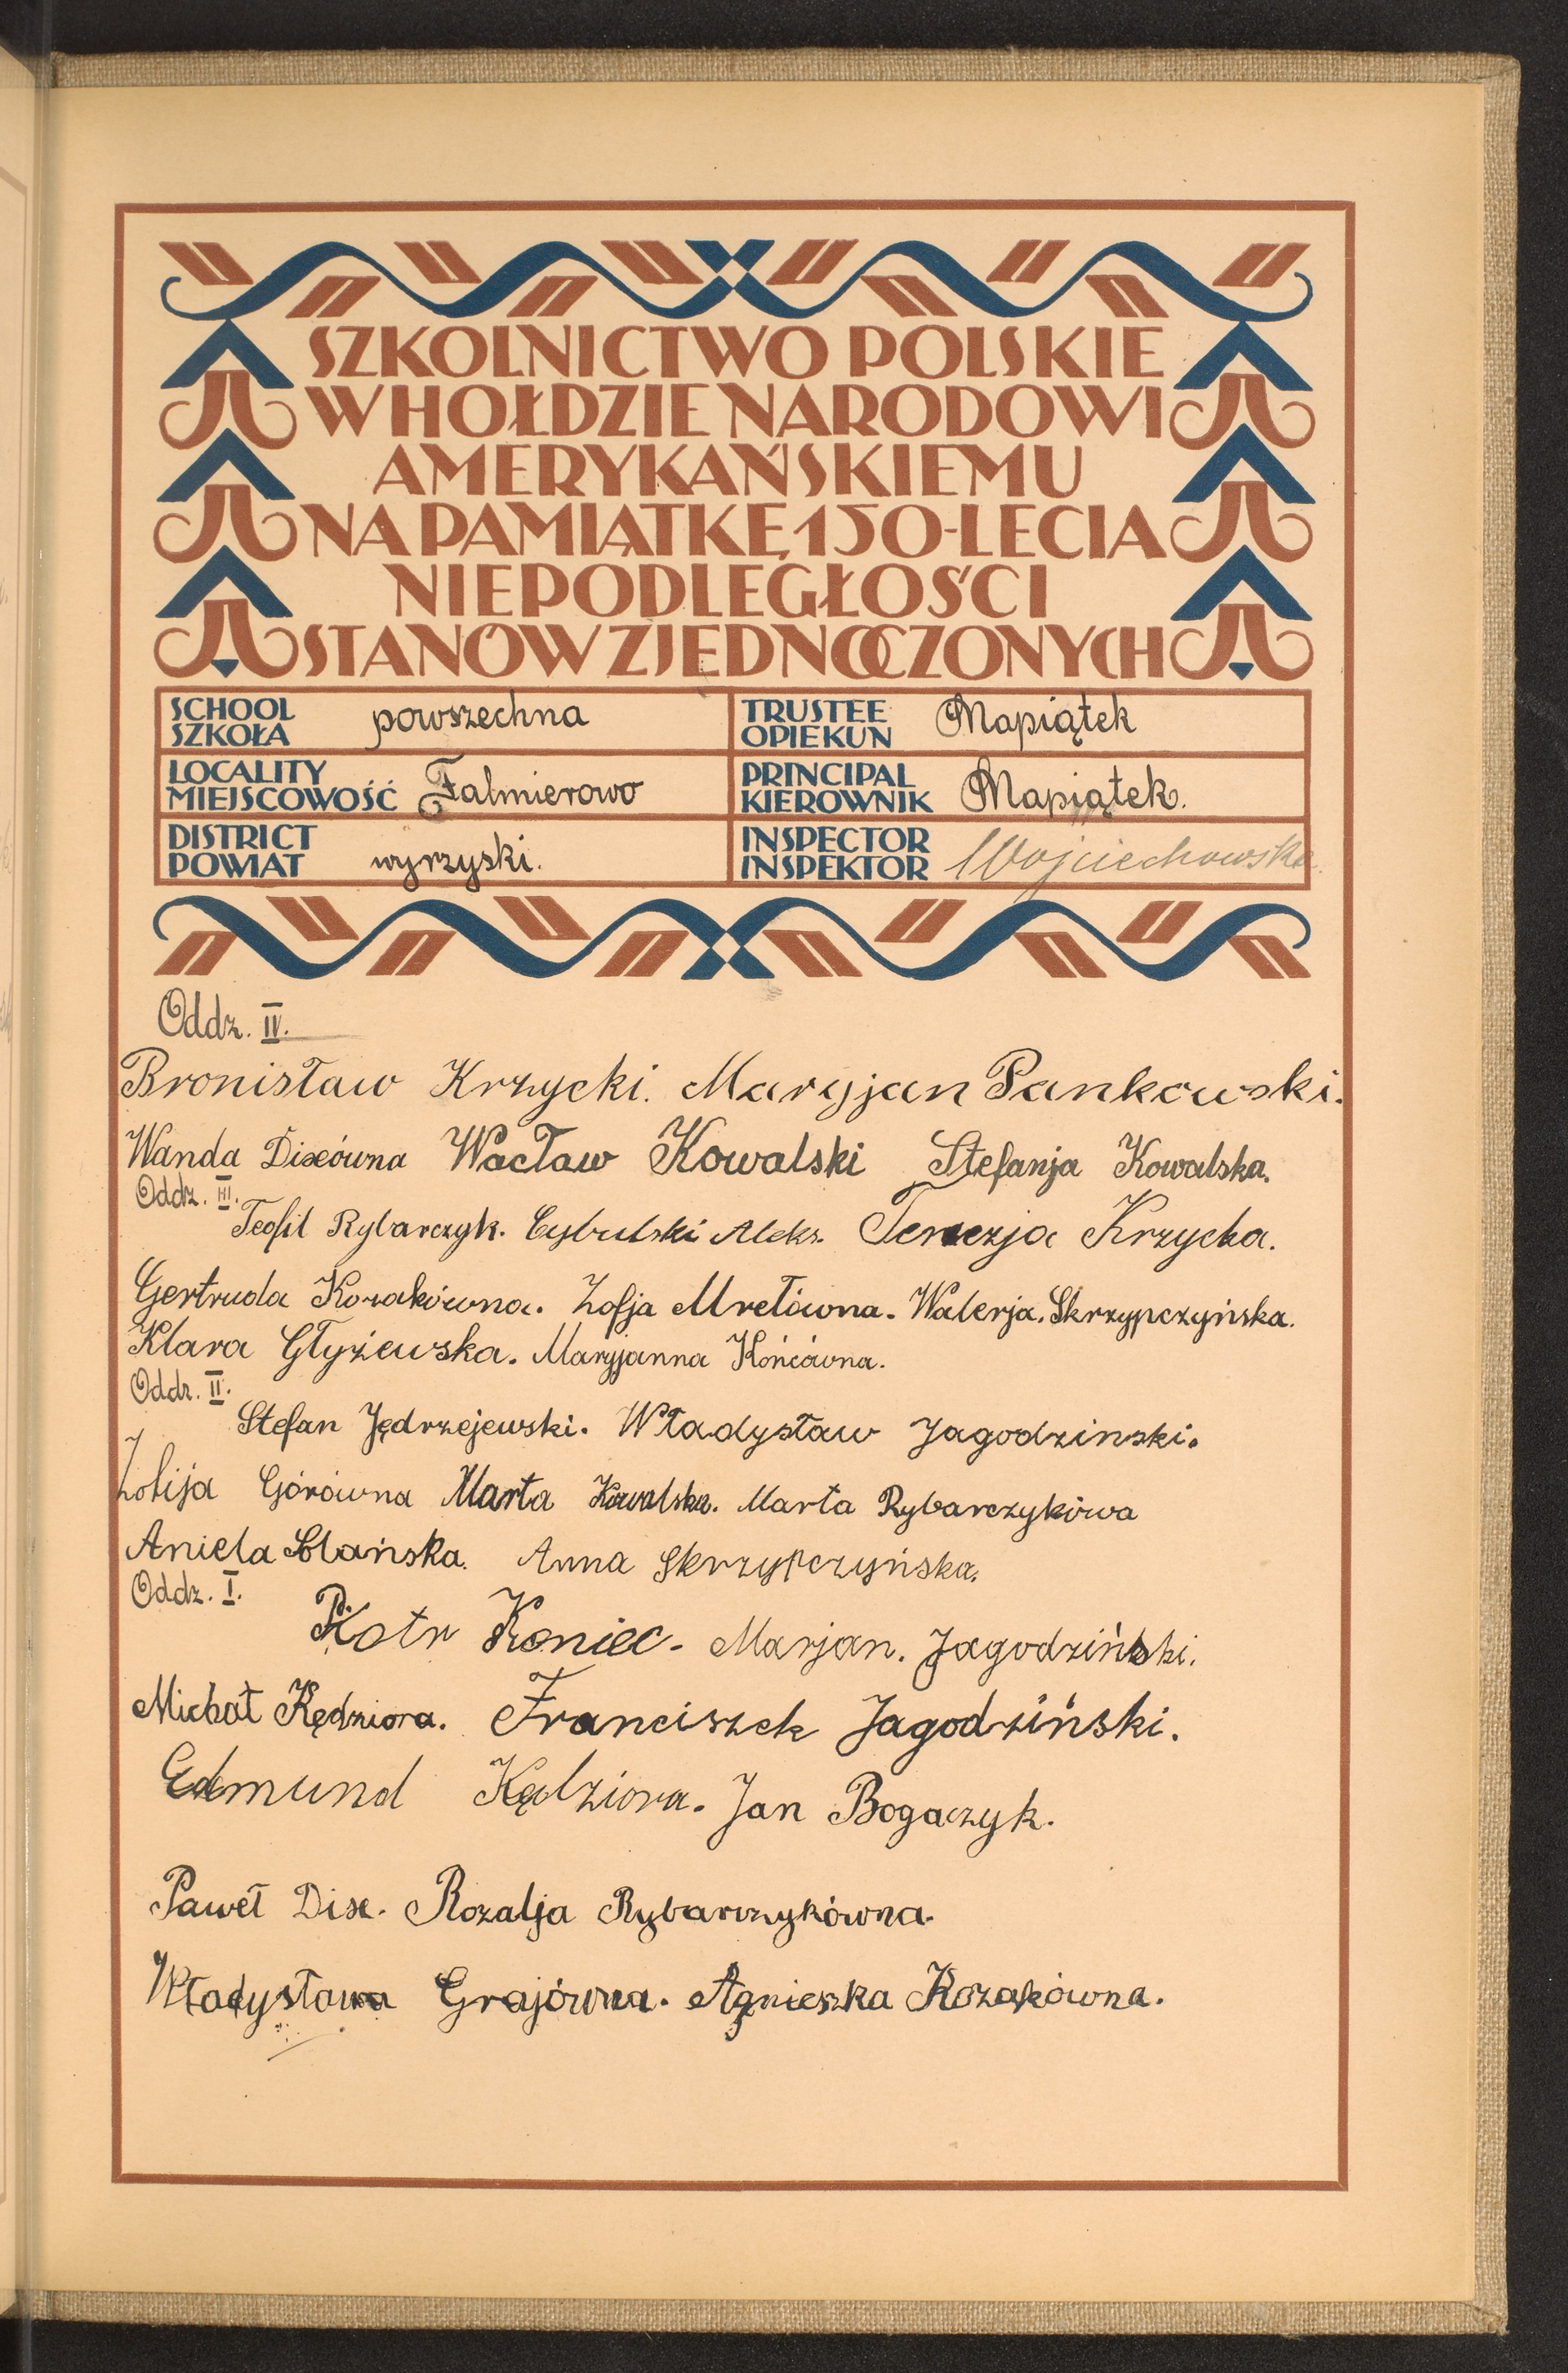 SZKOLNICTWO POLSKIE
W HOŁDZIE NARODOWI
AMERYKAŃSKIEMU
NA PAMIĄTKĘ 150-LECIA
NIEPODLEGŁOŚCI
STANÓW ZJEDNOCZONYCH
SCHOOL SZKOŁA powszechna
TRUSTEE OPIEKUN Mapiątek
LOCALITY MIEJSCOWOŚĆ Falmierowo
PRINCIPAL KIEROWNIK Mapiątek.
DISTRICT POWIAT wyrzyski.
INSPECTOR INSPEKTOR
Oddz. IV.
Bronisław Krzycki. Maryjan Pankowski.
Wanda Wacław Kowalski Stefanja Kowalska.
Oddz. III.
Teofil Rybarczyk. Cybulski Aleks. Terezja Krzycka.
Gertruda Kozakówna. Zofja Mretówna. Walerja. Skrzypczyńska.
Klara Głyżewska. Maryjanna Końcówna.
Oddz. II.
Stefan Jędrzejewski. Władysław Jagodzinski.
Zofija Górówna Marta Kowalska. Marta Rybarczykówa
Aniela Solańska. Anna Skrzypczyńska.
Oddz. I.
Piotr Koniec. Marjan. Jagodziński.
Michał Kędziora. Franciszek Jagodziński.
Edmund Kędziora. Jan Bogaczyk.
Paweł Rozalja Rybarczykówna.
Władysława Grajówna. Agnieszka Kozakówna.